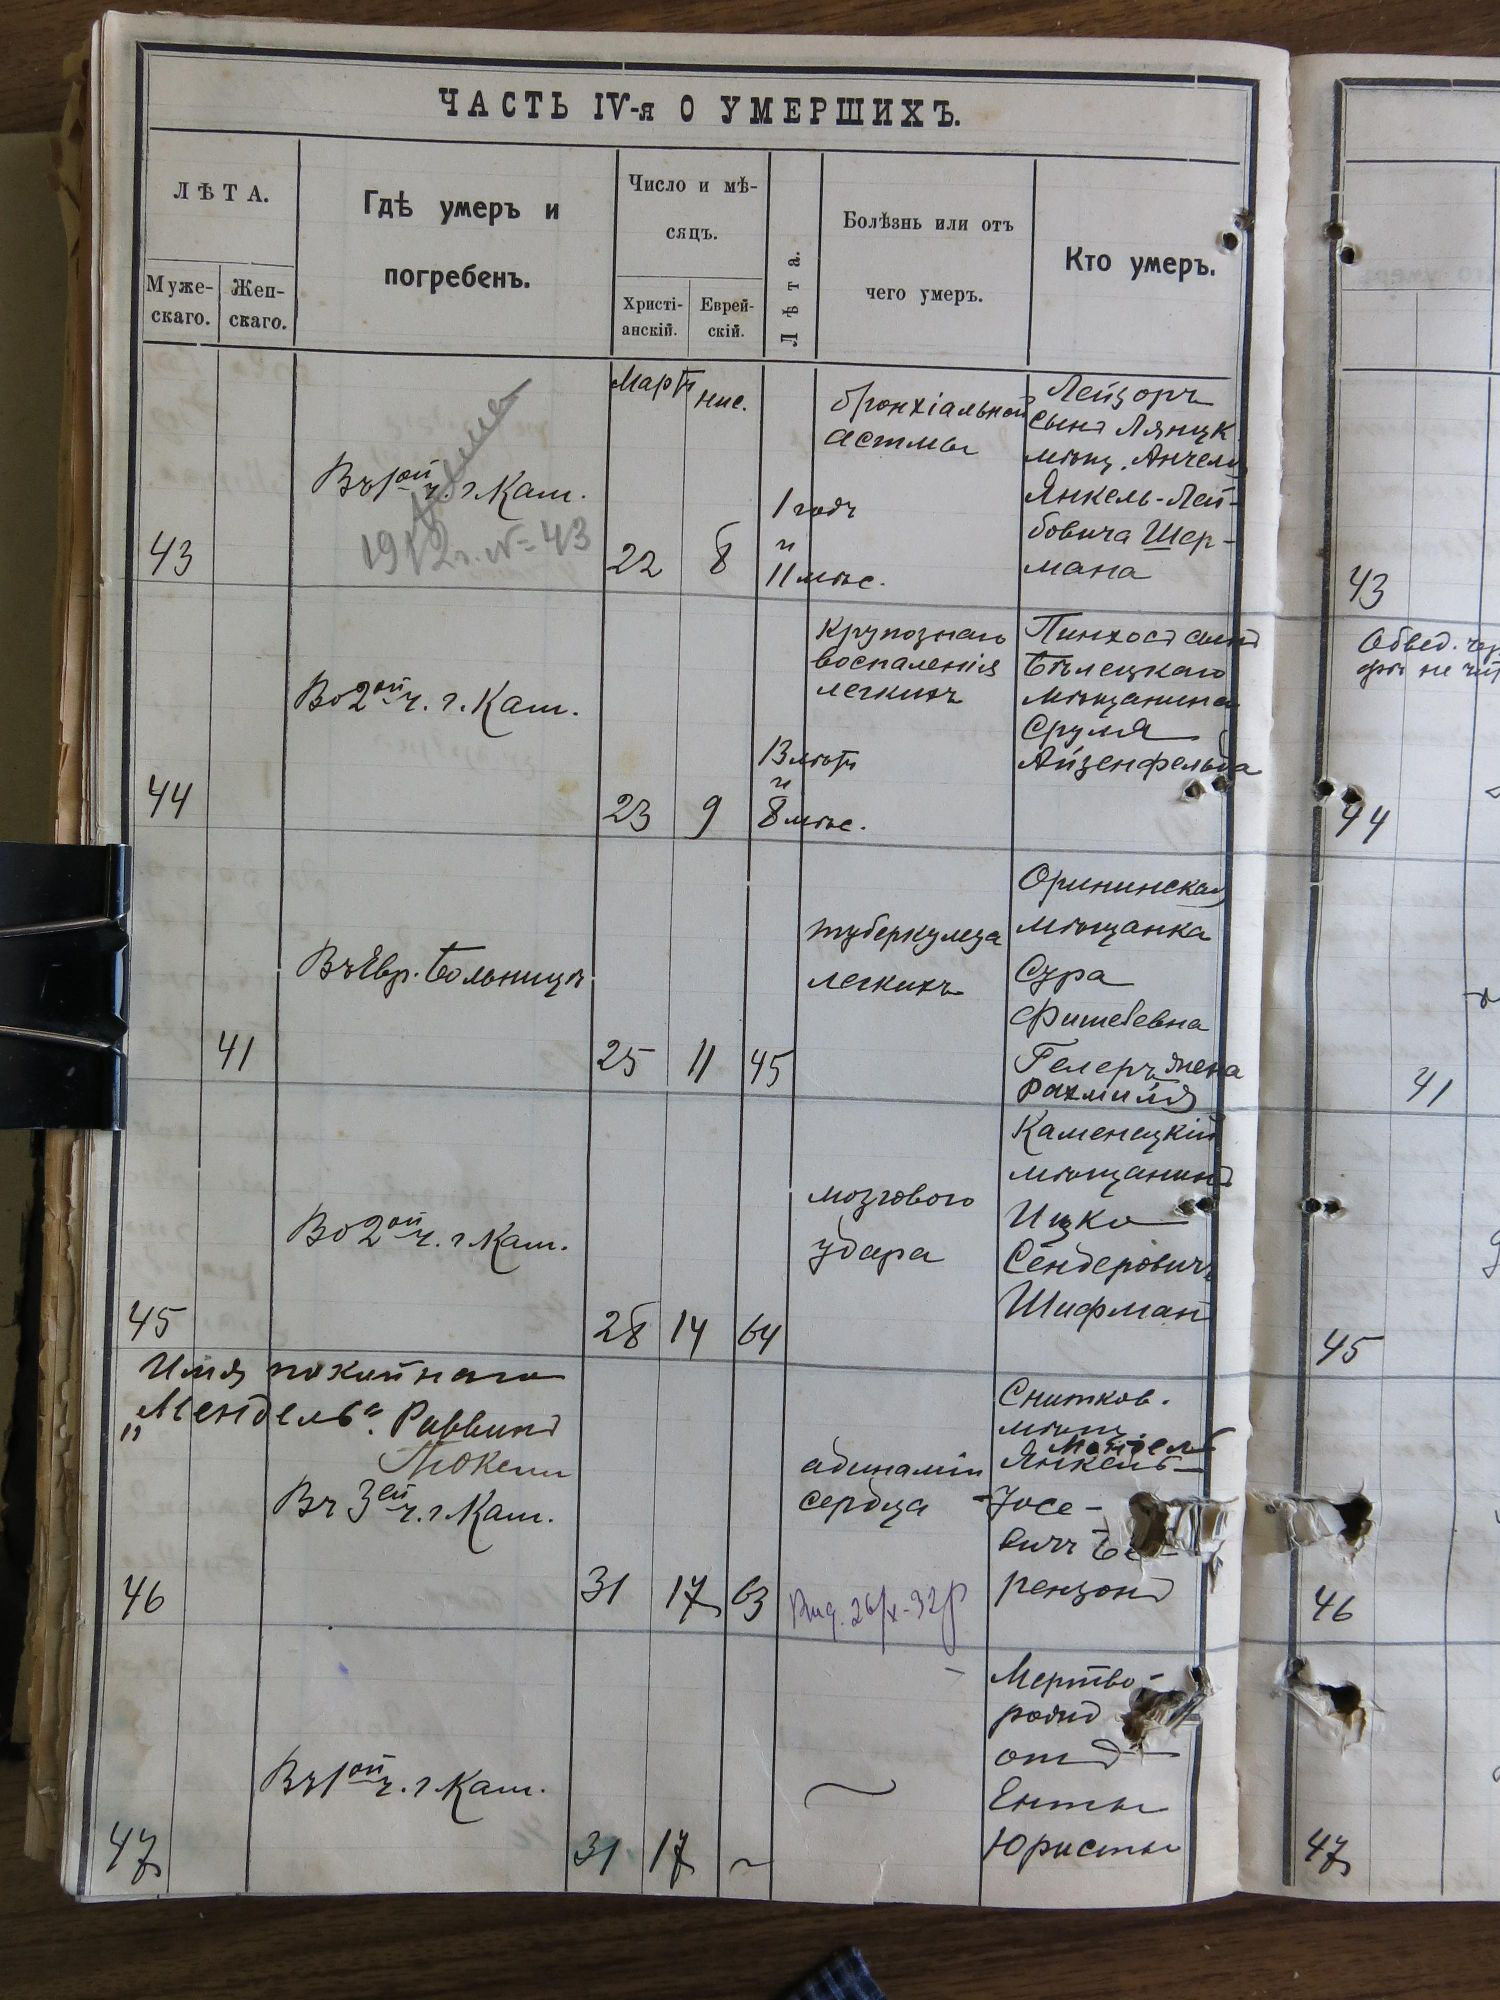 ЧАСТЬ IV-я О УМЕРШИХЪ.
ЛѢТА.
Муже-
скаго.
Жен-
скаго.
Гдѣ умеръ и
погребенъ.
Число и мѣ-
сяцъ.
Христі-
анскій.
Еврей-
скій.
Лѣта.
Болѣзнь или отъ
чего умеръ.
Кто умеръ.
Мартъ
нис.
43
Въ 1ой ч. г. Кам.
1912г. № 43
22
8
1 годъ
и
11 мѣс.
бронхіальной
астмы
Лейзоръ
сынъ Лянцк.
мѣщ.
Янкель-Лей-
бовича Шер-
мана
44
Во 2ой ч. г. Кам.
23
9
13 лѣтъ
и
8 мѣс.
крупознаго
воспаленія
легкихъ
Пинхосъ сынъ
Бѣлецкаго
мѣщанина
Сруля
Айзенфельда
41
Въ Евр. Больницѣ
25
11
45
туберкулеза
легкихъ
Орининская
мѣщанка
Сура
Фишелевна
Гелеръ жена
Рахмиля
45
Во 2ой ч. г. Кам.
28
14
64
мозгового
удара
Каменецкій
мѣщанинъ
Ицко
Сендеровичъ
Шифман
Имя покойнаго
„Мендель“. Раввинъ
46
Въ 3ей ч. г. Кам.
31
17
63
адинаміи
сердца
26/X-32р
Снитков.
мѣщ.
Мендель
Янкель-
Іосе-
вичъ Бе-
рензонъ
47
Въ 1ой ч. г. Кам.
31
17
~
~
Мертво-
рожд
отъ
Енты
Юристы
43
Обвед.
44
41
45
46
47